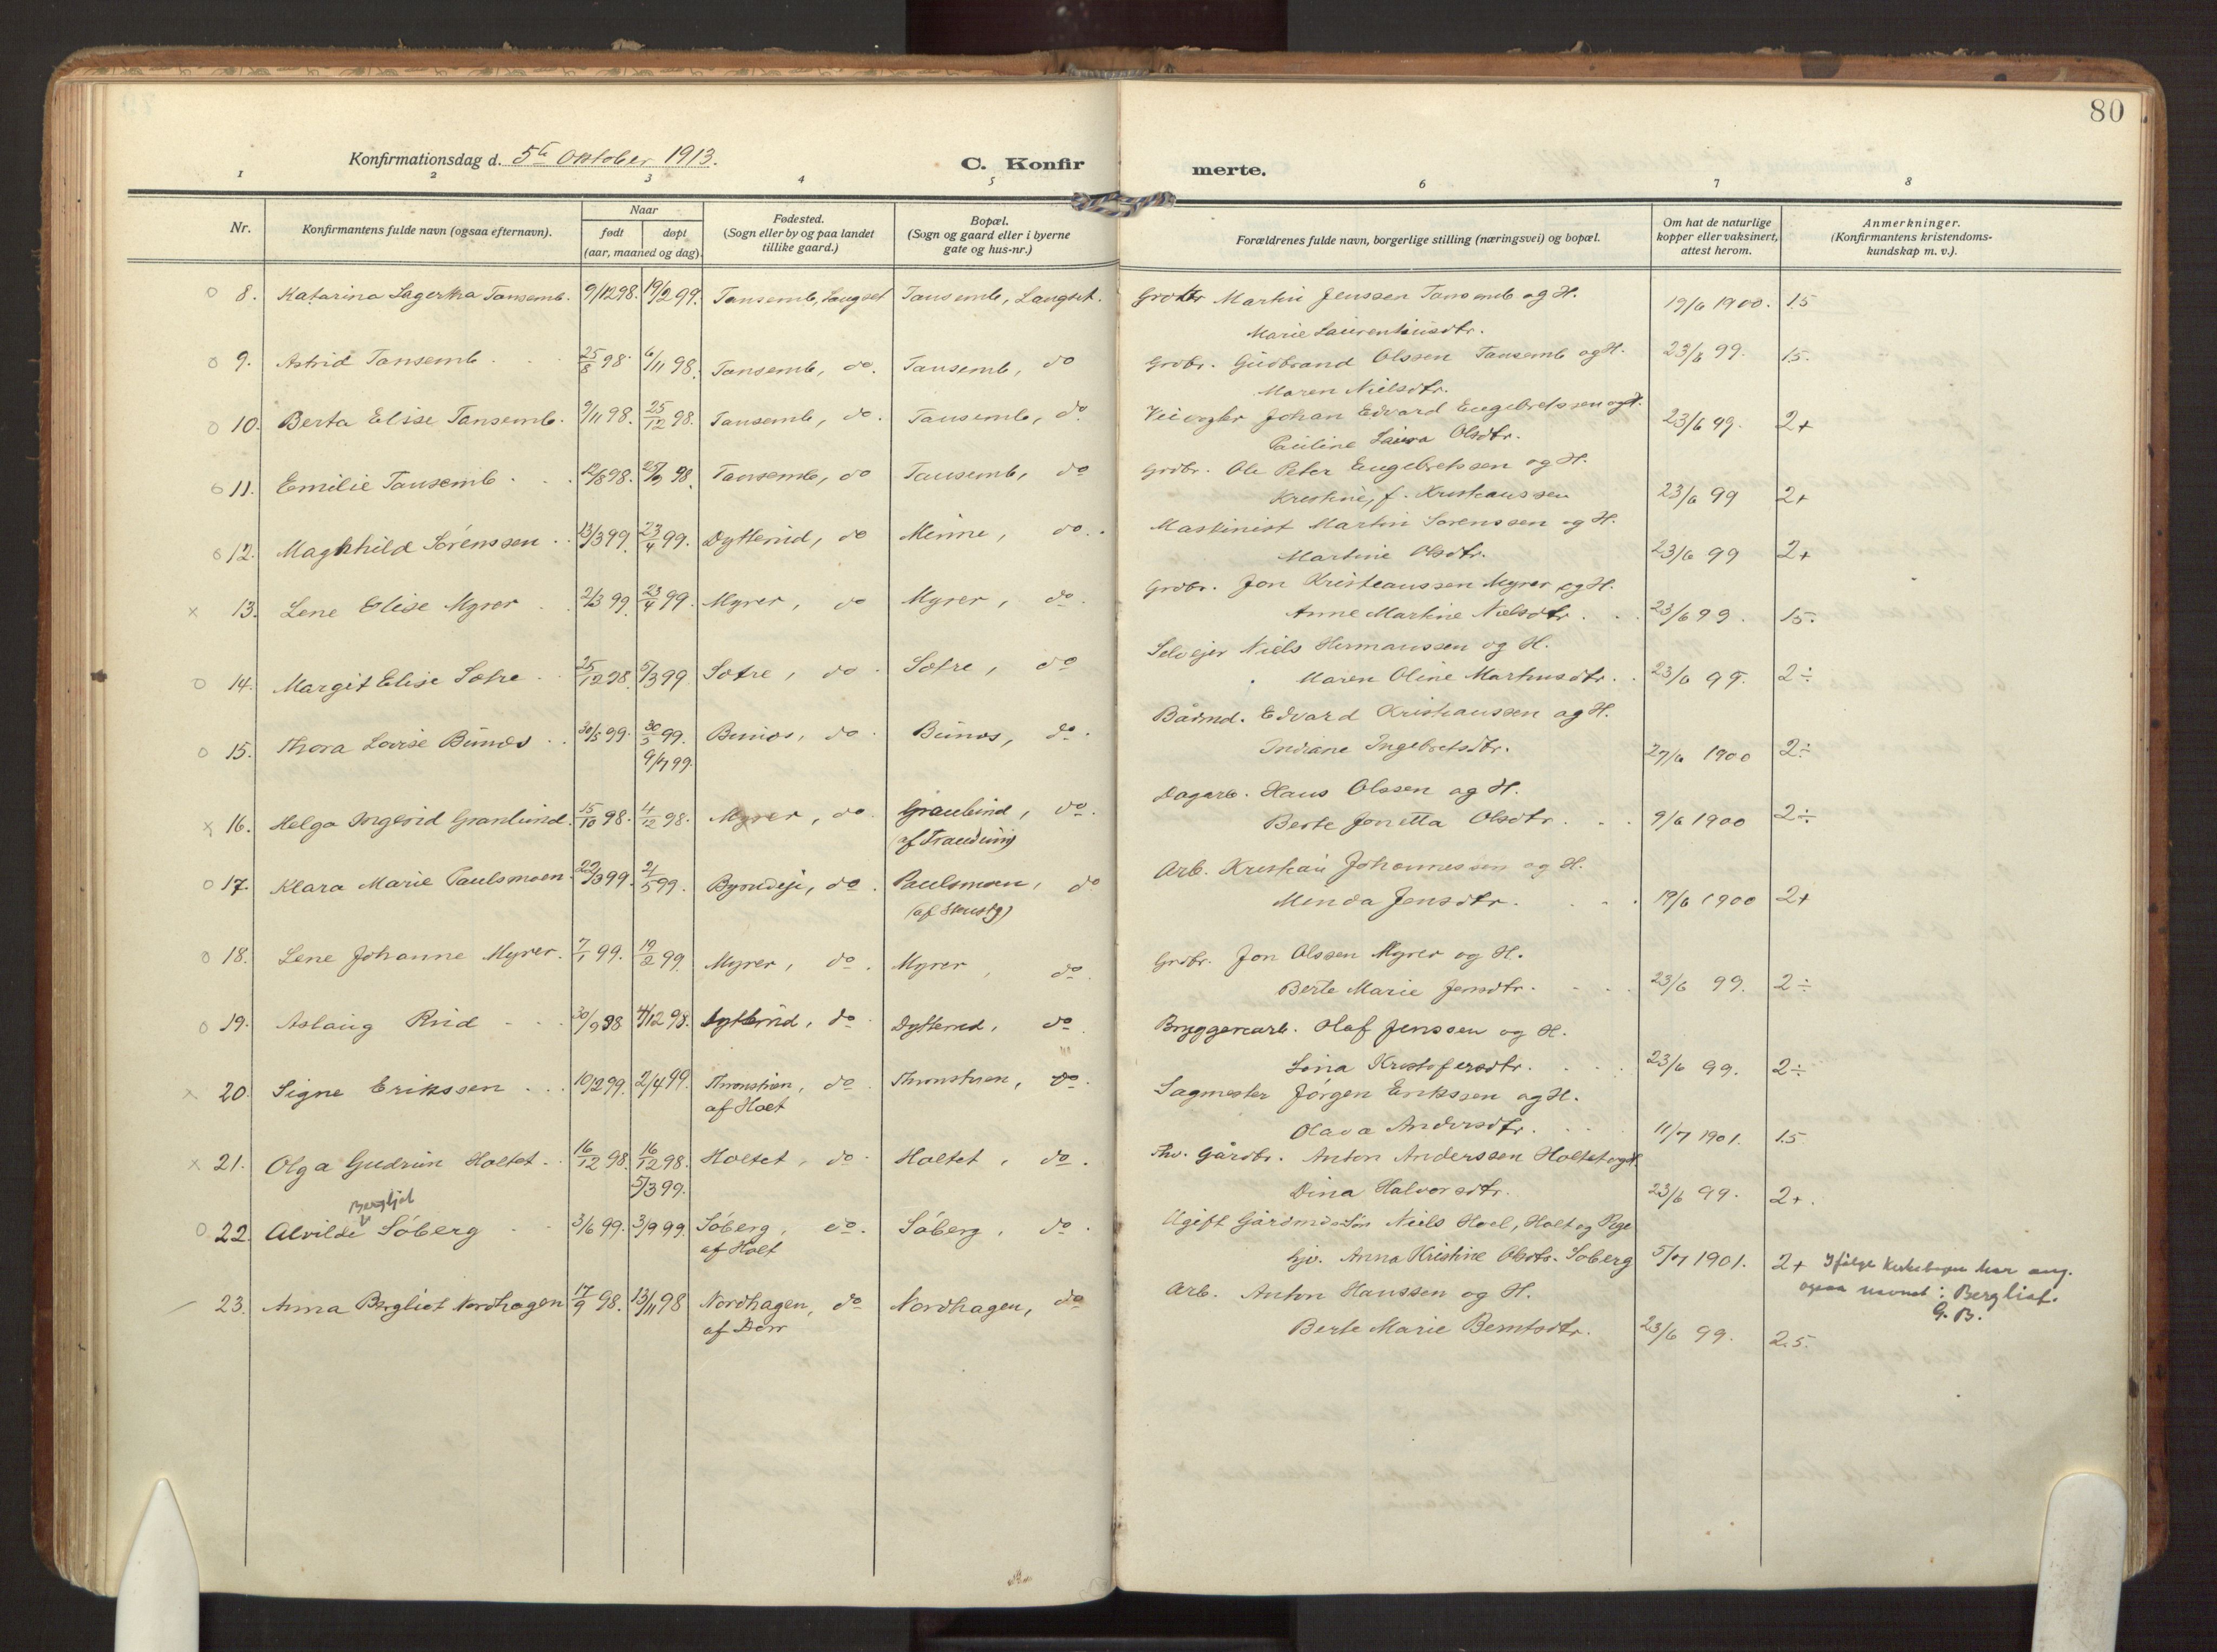 80
Konfirmationsdag d. 5te Oktober 1913.
C. Konfirmerte.
1 2 3 4 5 6 7 8
Nr.
Konfirmantens fulde navn (ogsaa efternavn).
Naar
født døpt
(aar, maaned og dag).
Fødested.
(Sogn eller by og paa landet
tillike gaard.)
Bopæl.
(Sogn og gaard eller i byerne
gate og hus-nr.)
Forældrenes fulde navn, borgerlige stilling (næringsvei) og bopæl.
Om hat de naturlige
kopper eller vaksinert,
attest herom.
Anmerkninger.
(Konfirmantens kristendoms-
kundskap m. v.).
o 8. Katarina Lagertha Tansemb. 9/12 98. 19/2 99. Tansemb, Langset Tansemb, Langset. Grdbr Martin Jenssen Tansemb og H. 19/6 1900. 1.5
Marie Laurentiusdtr.
o 9. Astrid Tansemb. 25/8 98. 6/11 98. Tansemb, do. Tansemb, do Grdbr. Gudbrand Olssen Tansemb og H. 23/6 99. 1.5.
Maren Nielsdtr.
o 10. Berta Elise Tansemb. 9/11 98. 25/12 98. Tansemb, do. Tansemb, do. Veivogter Johan Edvard Engebretssen og H. 23/6 99. 2+
Pauline Laura Olsdtr.
o 11. Emilie Tansemb. 12/8 98. 25/9 98. Tansemb, do Tansemb, do Grdbr. Ole Peter Engebretssen og H.
Kristine, f. Kristianssen 23/6 99 2+
o 12. Maghhild Sørenssen. 13/3 99. 23/4 99. Dytterud, do Minne, do. Maskinist Martin Sørenssen og H.
Martine Olsdtr. 23/6 99 2+
x 13. Lene Elise Myrer. 2/3 99. 23/4 99. Myrer, do Myrer, do. Grdbr. Jon Kristianssen Myrer og H.
Anne Martine Nielsdtr. 23/6 99. 1.5.
o 14. Margit Elise Sætre. 25/12 98. 5/3 99. Sætre, do. Sætre, do Selveier Niels Hermanssen og H.
Maren Oline Marthusdtr. 23/6 99. 2÷
o 15. Thora Lovise Bundes. 30/5 99. 30/5 99. Bundes, do. Bundes, do. Baadmd. Edvard Kristianssen og H.
9/7 99. Indiane Ingebretsdtr. 27/6 1900 2÷
x 16. Helga Ingerid Granlund. 15/10 98. 4/12 98. Myrer, do. Granlund, do. Dagarb. Hans Olssen og H.
(af Trandum) Berte Jonetta Olsdtr. 9/6 1900 2÷
o 17. Klara Marie Paulsmoen. 22/3 99. 2/5 99. Do. Paulsmoen, do Arb. Kristian Johannessen og H.
Menda Jensdtr. 19/6 1900 2+
o 18. Lene Johanne Myrer. 7/1 99. 19/2 99. Myrer, do. Myrer, do. Grdbr. Jon Olssen Myrer og H.
Berte Marie Jensdtr. 23/6 99. 2÷
o 19. Aslaug Rud 30/9 98 4/12 98. Dytterud, do. Dytterud, do. Bryggerearb. Olaf Jenssen og H.
Lina Kristofersdtr. 23/6 99. 2÷
x 20. Signe Erikssen. 10/2 99. 2/4 99. Thronstuen, do. Thronstuen, do. Sagmester Jørgen Erikssen og H.
af Holt Olava Andersdtr. 11/7 1901. 1.5
x 21. Olga Gudrun Holtet. 16/12 98. 16/12 98. Holtet, do. Holtet, do. Fhv. Gårdbr. Anton Anderssen Holtet og H.
5/3 99. Dina Halvorsdtr. 23/6 99. 2+.
Bergljot
o 22. Alvilde Søberg 3/6 99. 3/9 99. Søberg, do. Søberg, do. Ugift Gårdmds Søn Niels Hoel, Holt og Pige
af Holt Gjv. Anna Kristine Olsdtr. Søberg 5/7 1901. 2+ Ifølge kirkebogen har ang.
ogsaa navnet: Bergliot.
G.B.
23. Anna Bergliot Nordhagen 17/9 98. 13/11 98 Nordhagen, do Nordhagen, do Arb. Anton Hanssen og H.
af Dorr Berte Marie Berntsdtr. 23/6 99. 2.5.